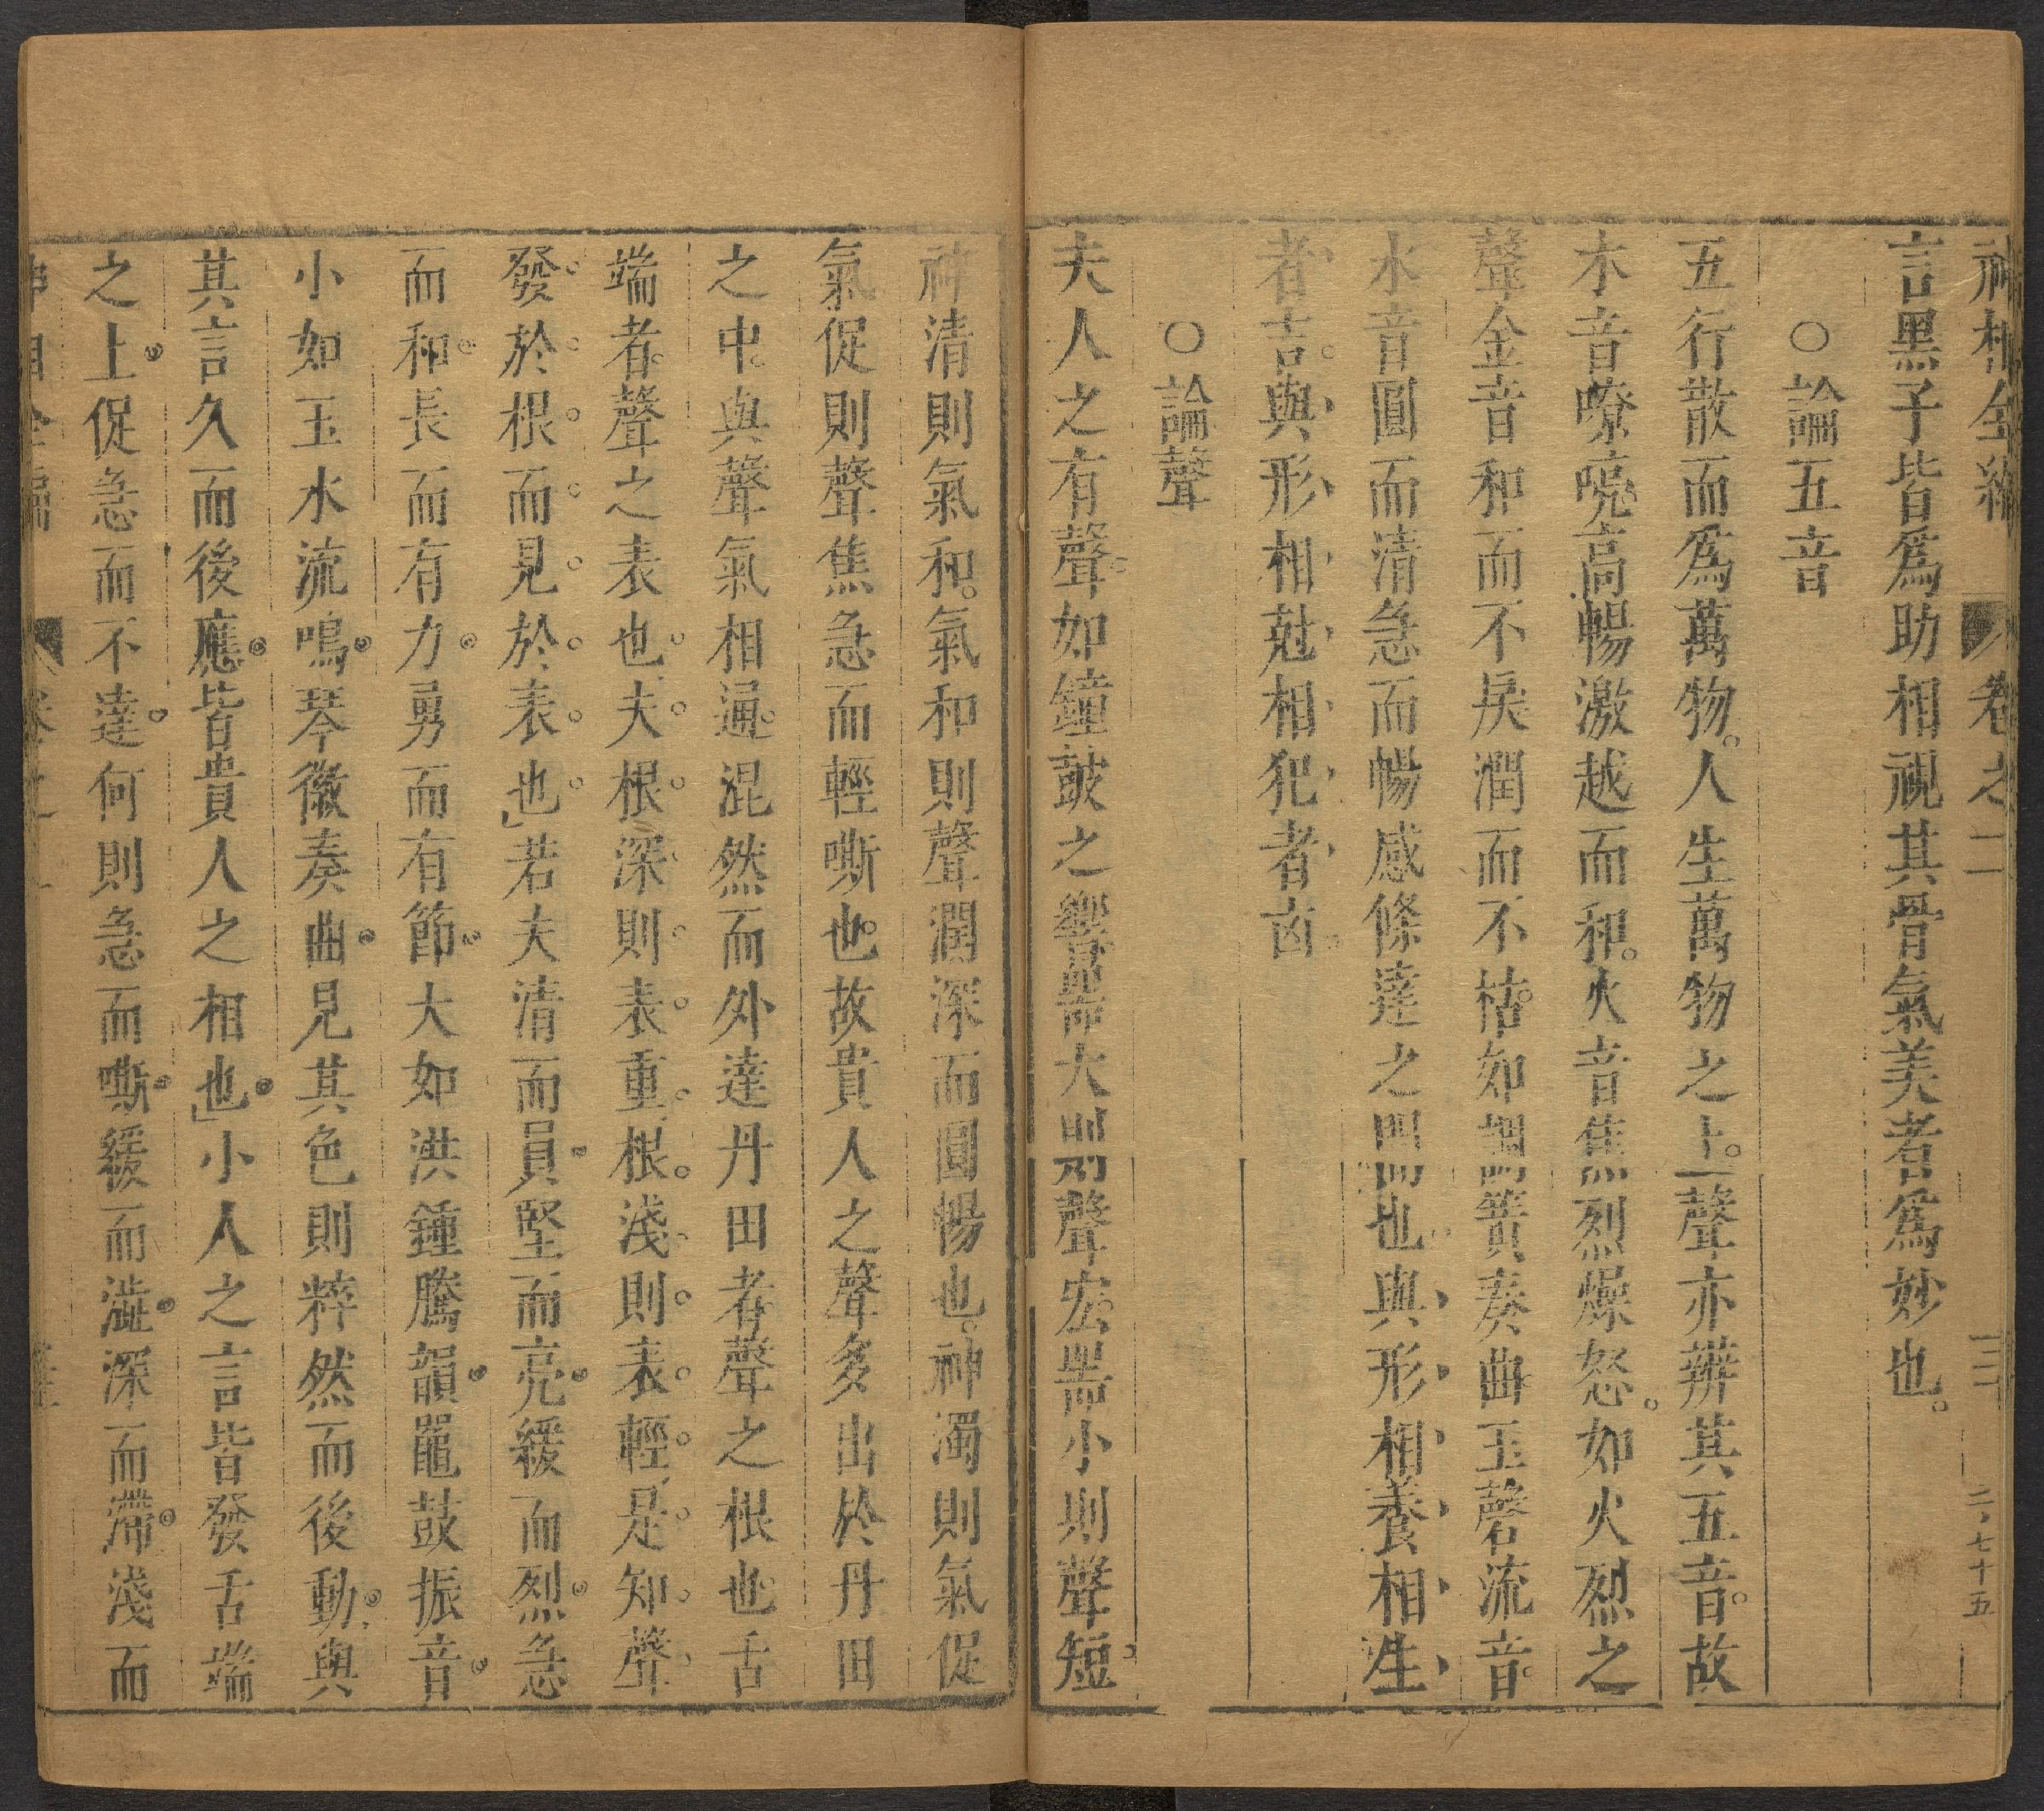 神相全編 卷之二
二ノ七十五
言黑子皆爲助相視其骨氣美者爲妙也。
○論五音
五行散而爲萬物。人生萬物之上。聲亦辨其五音。故
木音嘹喨高暢激越而和。火音焦烈燥怒。如火烈之
聲金音和而不戾潤而不枯。如調簧奏曲。玉磬流音。
水音圓而清急而暢感條達之間也。與形相養相生
者吉。與形相尅相犯者凶。
○論聲
夫人之有聲。如鐘鼓之響器大則聲宏。器小則聲短。
神清則氣和。氣和則聲潤深而圓暢也。神濁則氣促
氣促則聲焦急而輕嘶也。故貴人之聲多出於丹田
之中。與聲氣相通。混然而外達丹田者聲之根也。舌
端者。聲之表也。夫根深則表重。根淺則表輕。是知聲
發於根而見於表也」若夫清而員堅而亮緩而烈急
而和長而有力勇而有節大如洪鐘騰韻鼉鼓振音
小如玉水流鳴琴徽奏曲見其色則粹然而後動。與
其言久而後應皆貴人之相也」小人之言皆發舌端
之上促急而不達。何則急而嘶緩而澁深而滯淺而